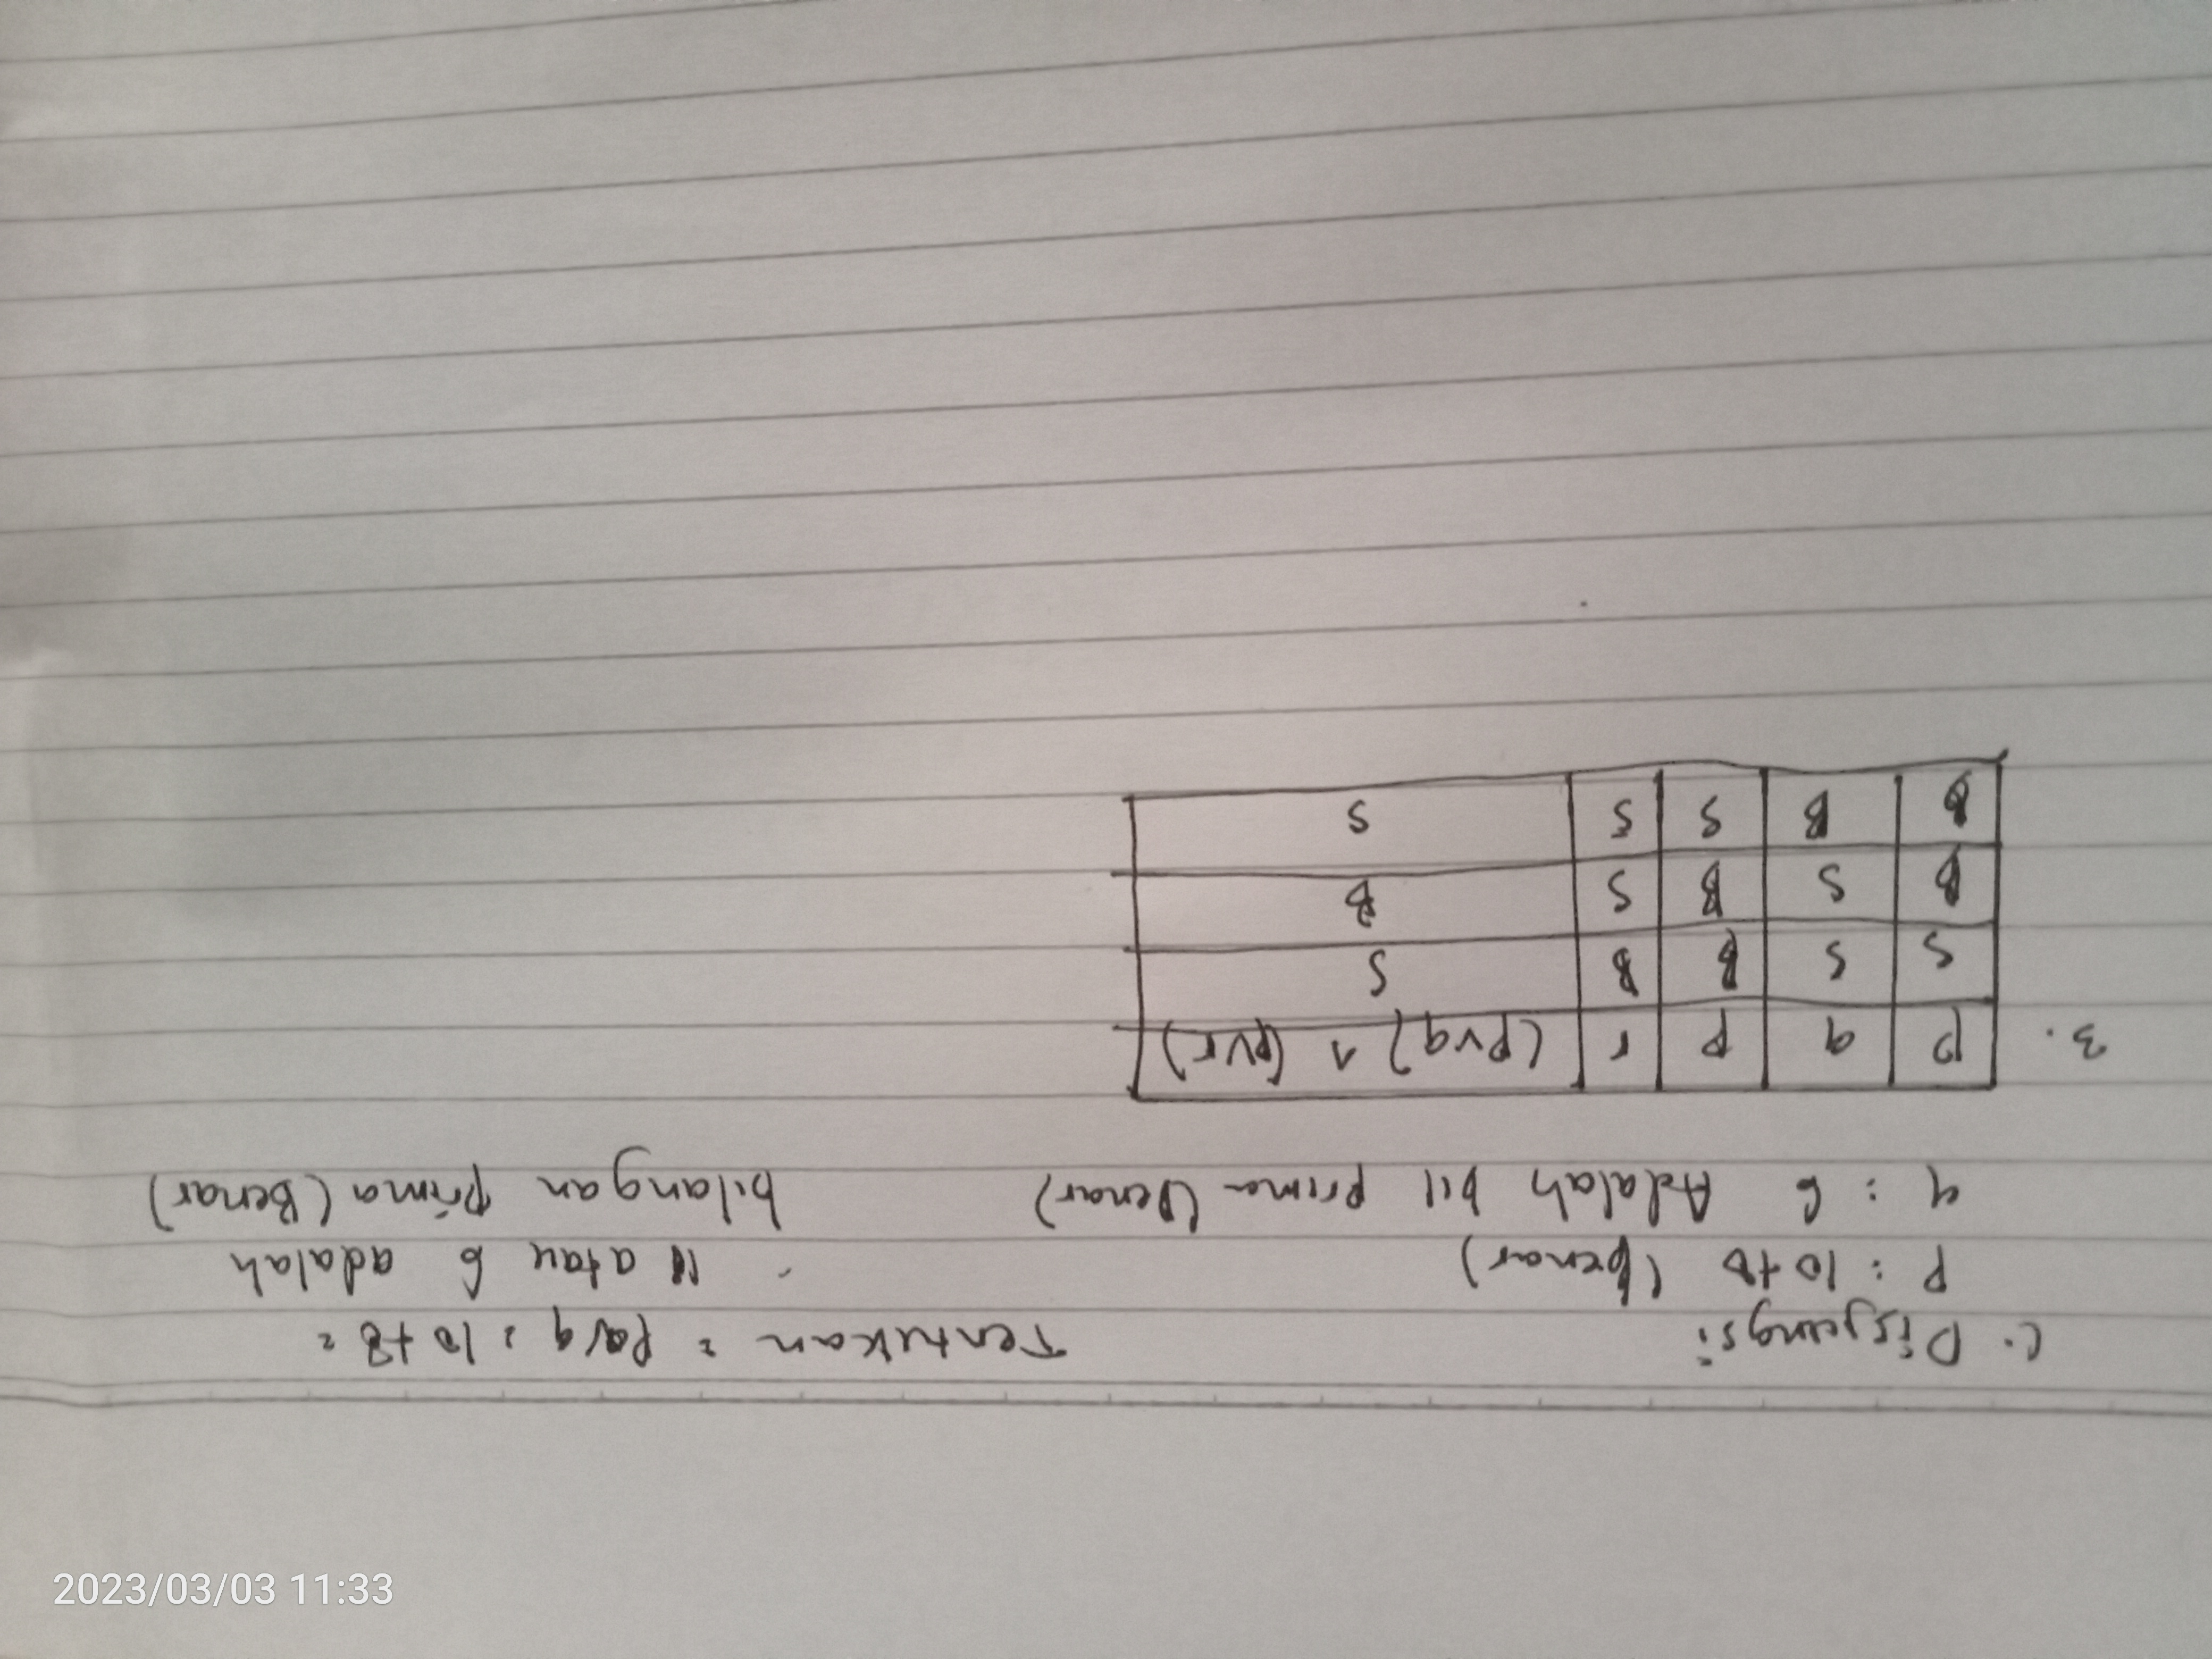 2023/03/03 11:33
C. Disjungsi
P : 10 + 8 (benar)
q : 6 Adalah bil prima (Benar)
Tentukan = p v q , 10 + 8 =
11 atau 6 adalah
bilangan prima (Benar)
3.
p q p r (pvq) ^ (pvr)
S S B B S
B S B S B
B B S S S